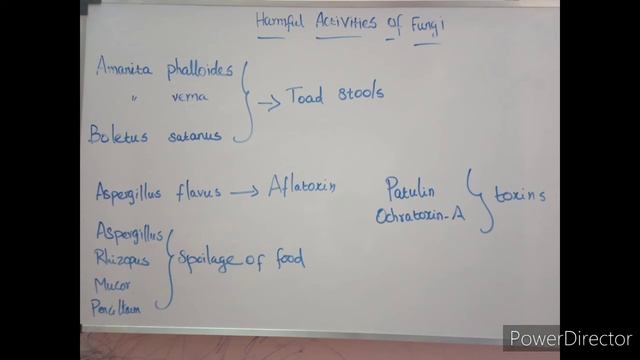 Harmful Activities of Fungi
Amanita phalloides
" verna
Boletus satanus
→ Toad stools
Aspergillus flavus → Aflatoxin
Patulin
Ochratoxin-A
toxins
Aspergillus
Rhizopus
Mucor
Pencillium
Spoilage of food
PowerDirector